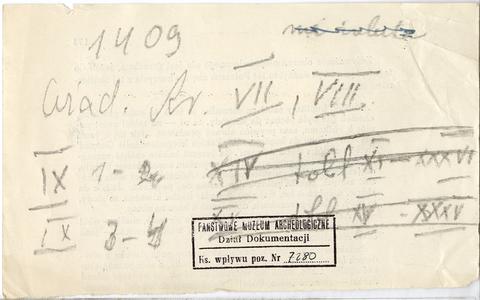 1409
Wiad. Ar. VII, VIII.
IX 1-2 XIV tabl XI-XXXVI
IX 3-4 XV XV-XXXV
PAŃSTWOWE MUZEUM ARCHEOLOGICZNE
Dział Dokumentacji
Ks. wpływu poz. Nr 7280